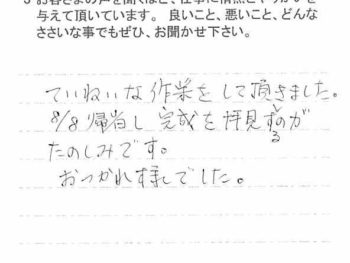 お客さまの声を聞くほど、仕事に情熱とやりがいを
与えて頂いています。 良いこと、悪いこと、どんな
ささいな事でもぜひ、お聞かせ下さい。
ていねいな作業をして頂きました。
8/8 帰省し 完成を拝見するのが
たのしみです。
おつかれ様でした。